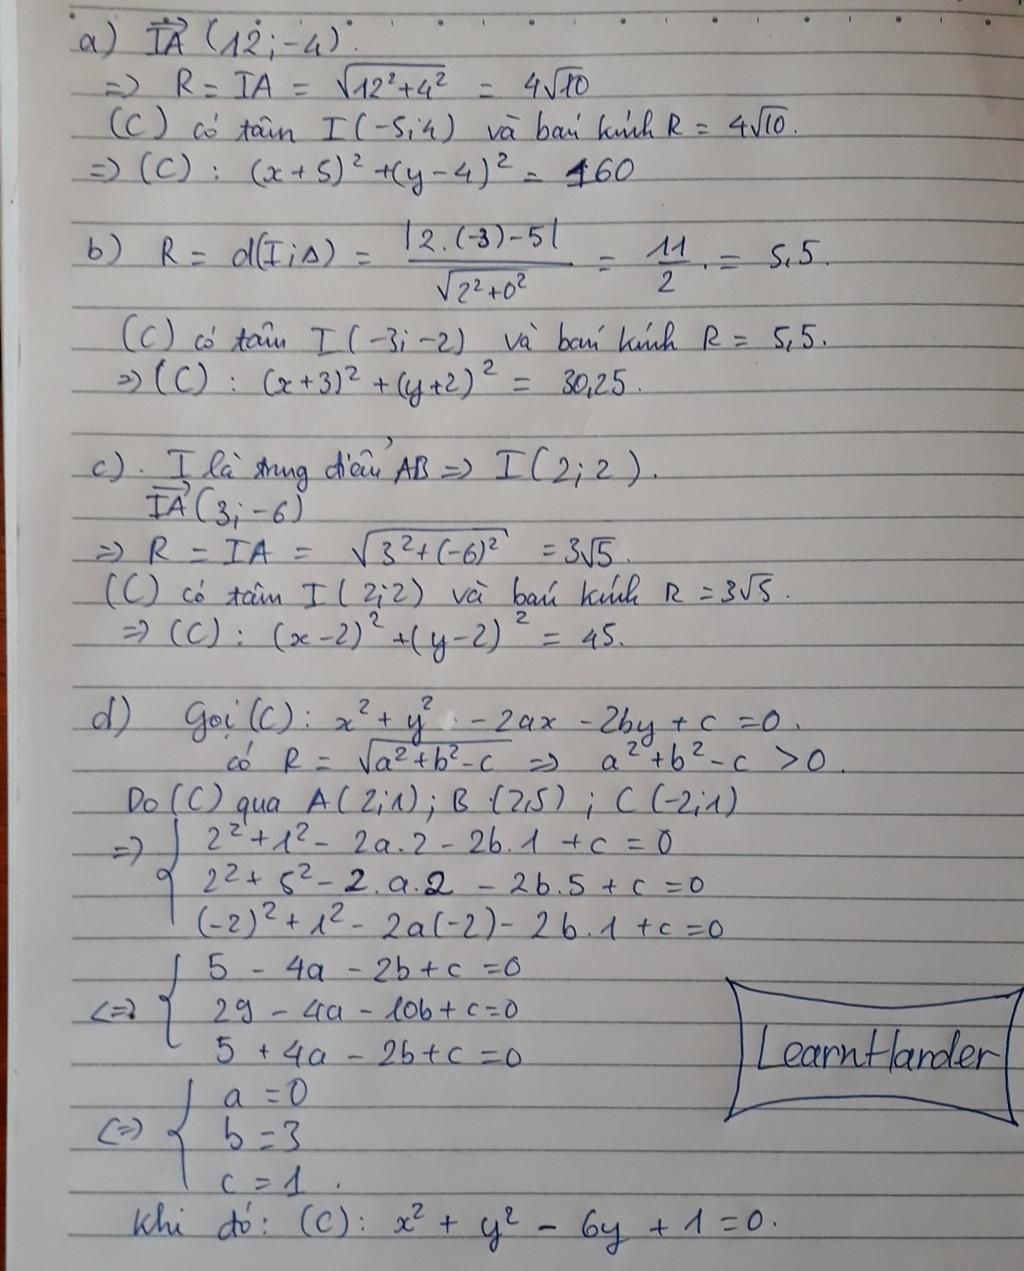 a) IA (12; -4).
=> R = IA = √(12² + 4²) = 4√10
(C) có tâm I (-5; 4) và bán kính R = 4√10.
=> (C) : (x + 5)² + (y - 4)² = 160
b) R = d(I; Δ) = |2.(-3) - 5| / √(2² + 0²) = 11/2 . = 5,5.
(C) có tâm I (-3; -2) và bán kính R = 5,5.
=> (C) : (x + 3)² + (y + 2)² = 30,25.
c). I là trung điểm AB => I (2; 2).
IA (3; -6)
=> R = IA = √(3² + (-6)²) = 3√5.
(C) có tâm I (2; 2) và bán kính R = 3√5.
=> (C) : (x - 2)² + (y - 2)² = 45.
d) Gọi (C) : x² + y² - 2ax - 2by + c = 0.
có R = √(a² + b² - c) => a² + b² - c > 0.
Do (C) qua A (2; 1) ; B (2, 5) ; C (-2; 1)
=> { 2² + 1² - 2a.2 - 2b.1 + c = 0
2² + 5² - 2.a.2 - 2b.5 + c = 0
(-2)² + 1² - 2a(-2) - 2b.1 + c = 0
<=> { 5 - 4a - 2b + c = 0
29 - 4a - 10b + c = 0
5 + 4a - 2b + c = 0
<=> { a = 0
b = 3
c = 1.
Khi đó: (C) : x² + y² - 6y + 1 = 0.
LearnHarder